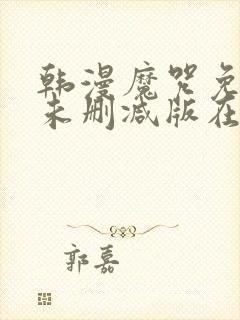 韩漫魔咒免
未删减版在
郭嘉